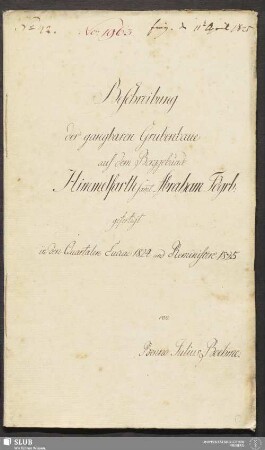 No 12. No 1963.
Beschreibung
der gangbaren Grubenbaue
auf dem Berggebäude
Himmelfarth samt Abraham Fdgrb.
gefertigt
in den Quartalen Luciae 1824 und Reminiscere 1825
von
Benno Julius Boehme.
SLUB